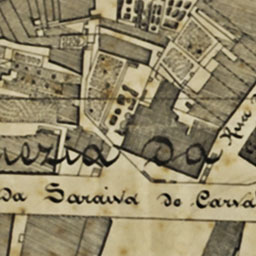 nezia da
Rua
Da Saraiva de Carva